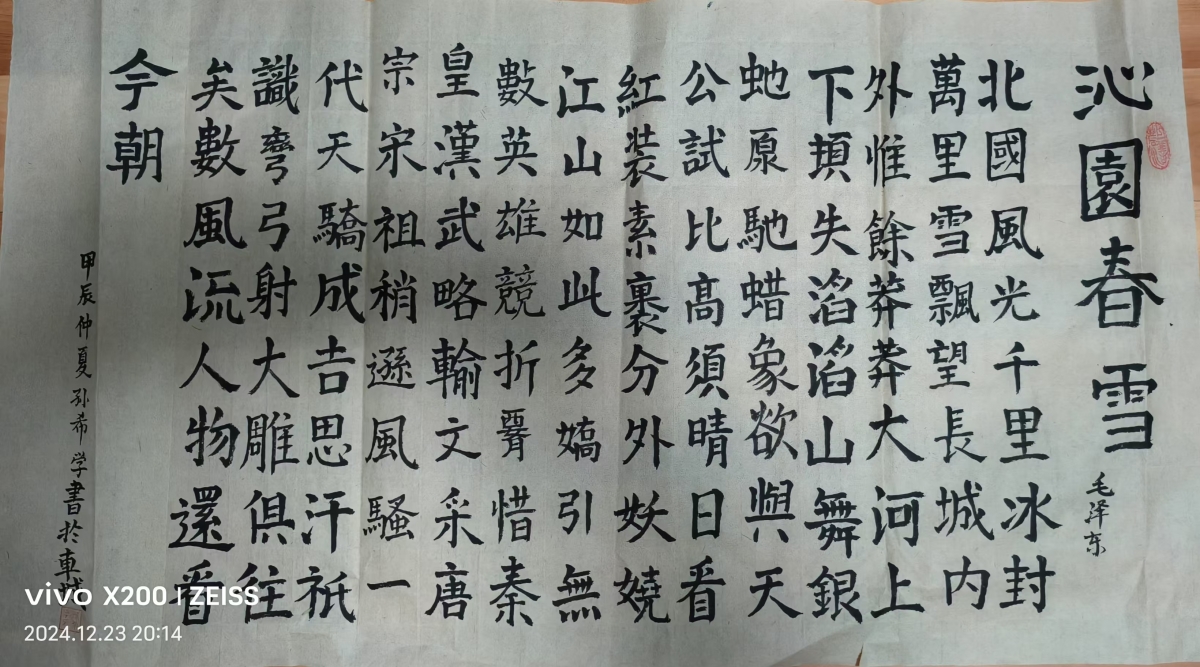 沁園春雪
毛泽东
北國風光千里冰封
萬里雪飄望長城内
外惟餘莽莽大河上
下頓失滔滔山舞銀
虵原馳蜡象欲與天
公試比髙須晴日看
紅裝素裹分外妖嬈
江山如此多嬌引無
數英雄競折惜秦
皇漢武略輸文采唐
宗宋祖稍遜風騷一
代天驕成吉思汗祇
識彎弓射大雕俱往
矣數風流人物還看
今朝
甲辰仲夏孙希学書於車城
vivo X200 | ZEISS
2024.12.23 20:14